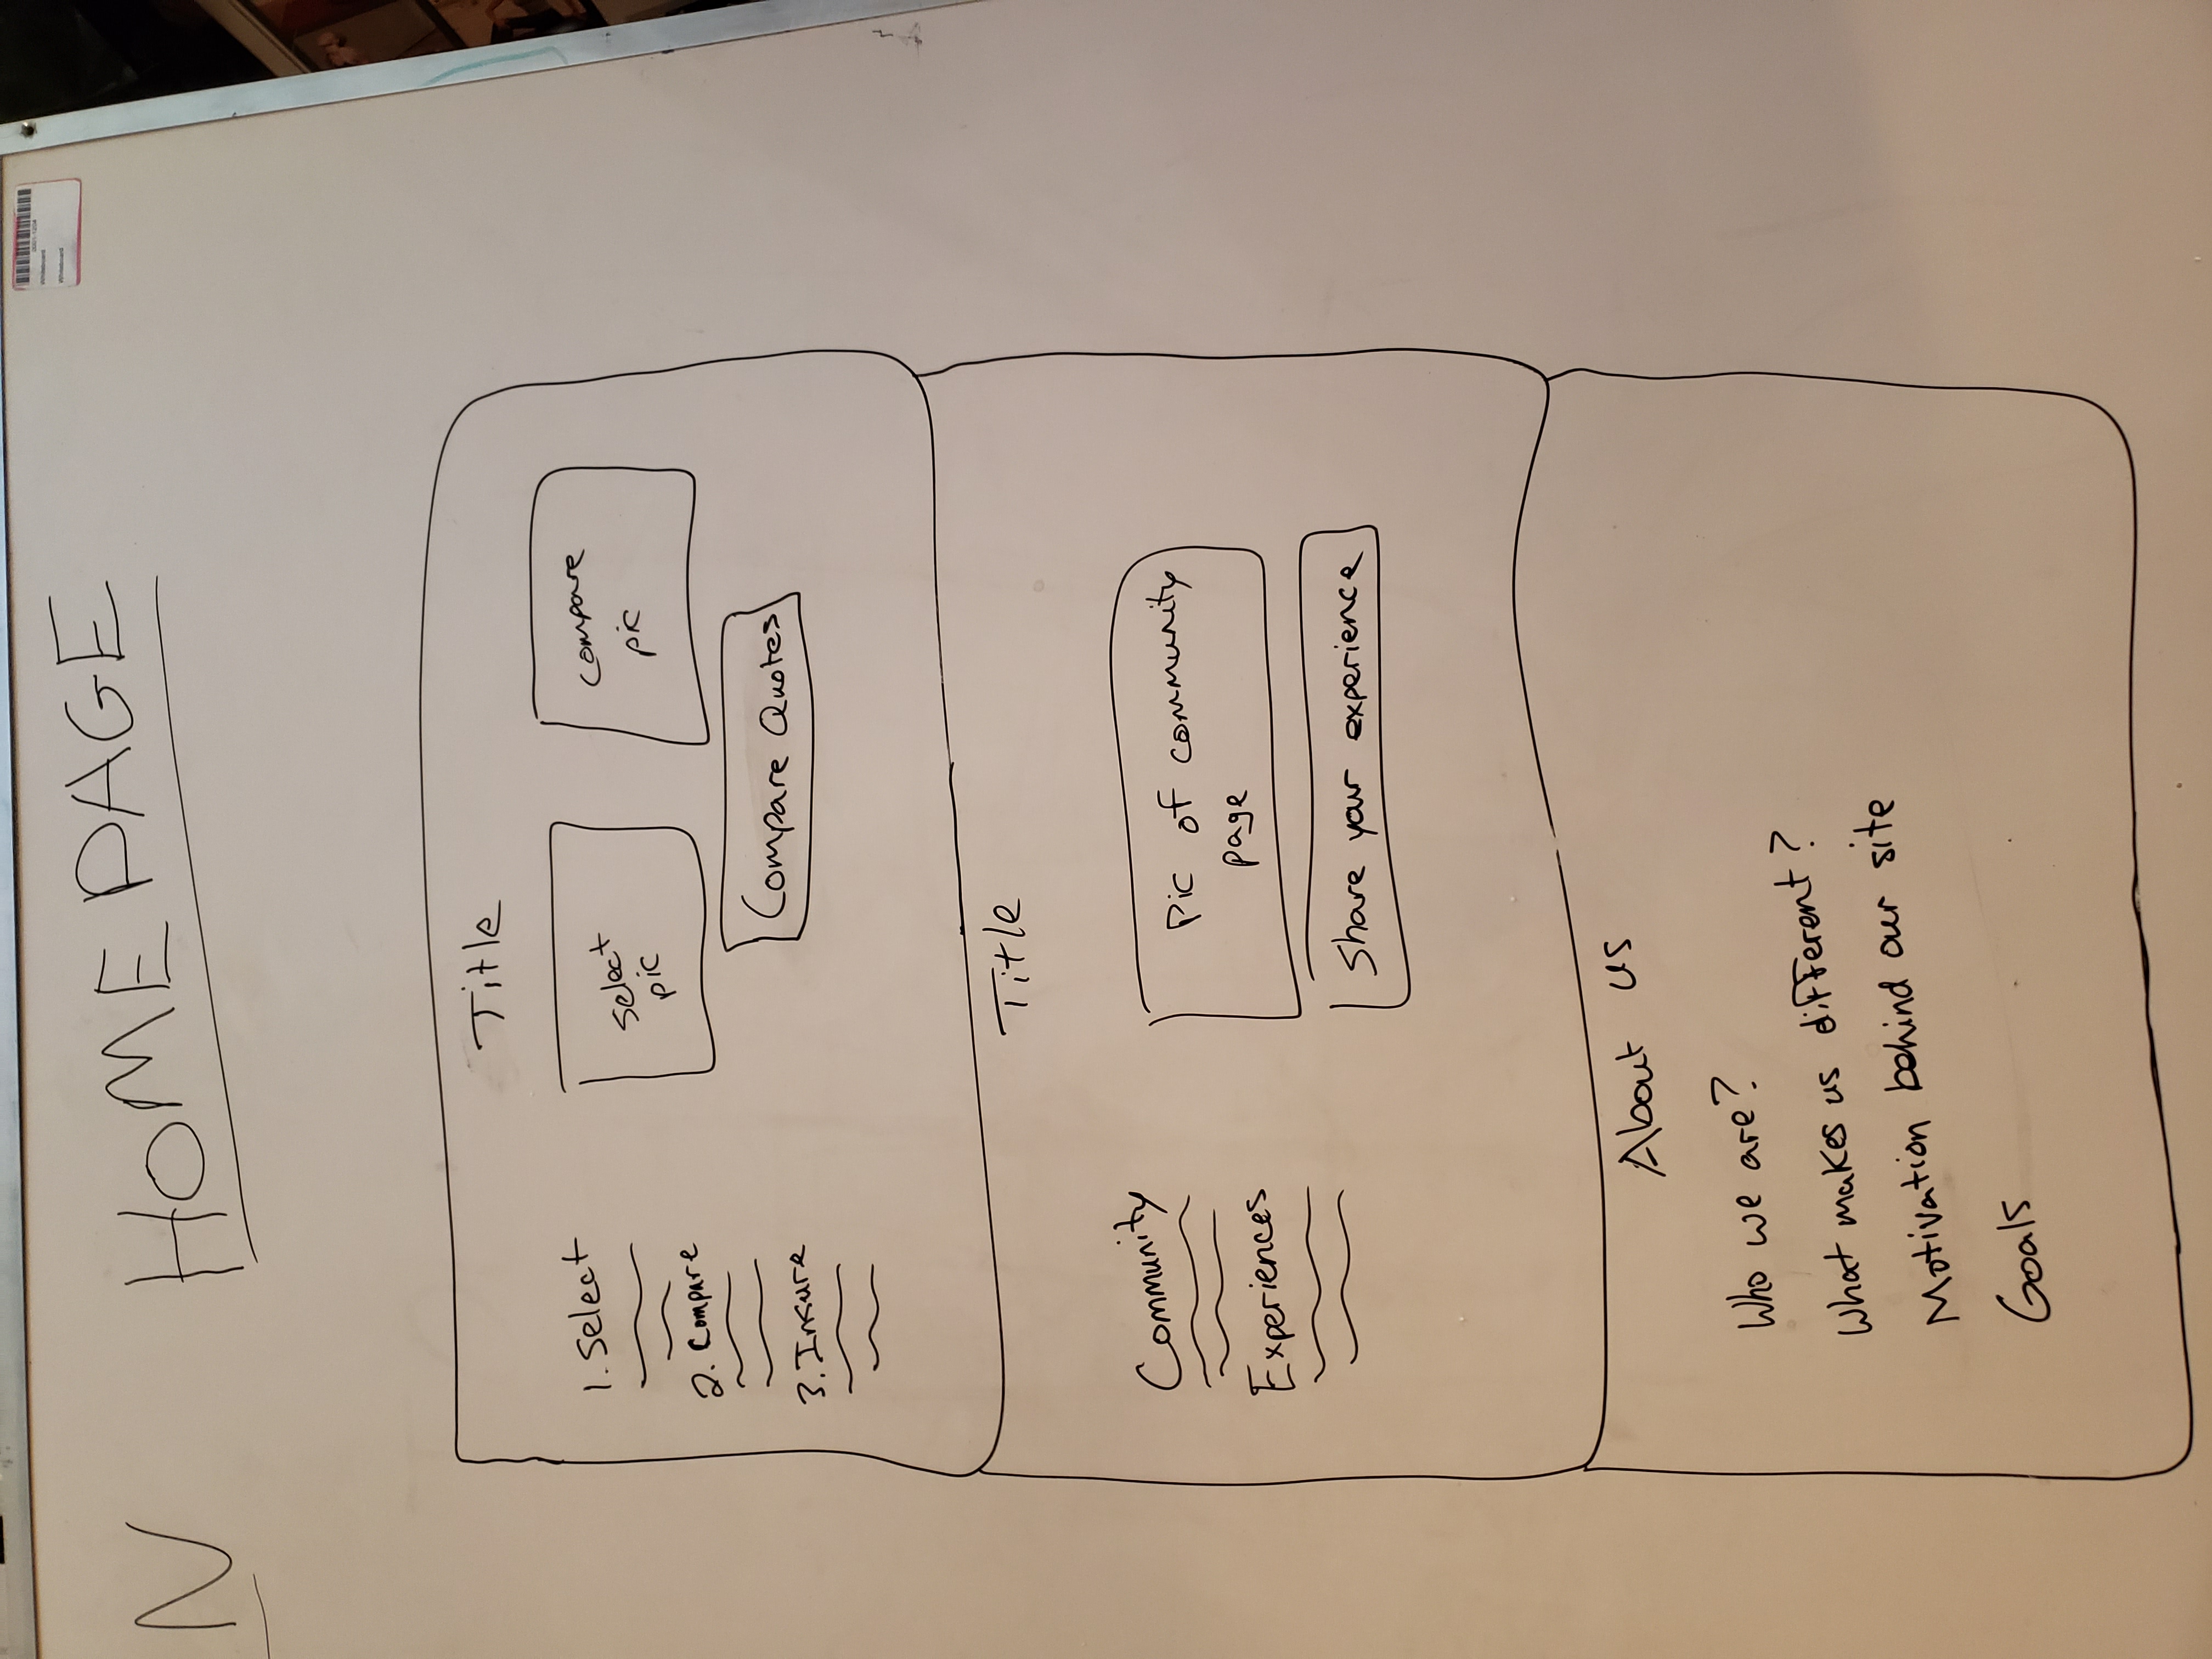 0001-1204
Whiteboard
Whiteboard
N
HOMEPAGE
Title
1. Select
2. Compare
3. Insure
Select
pic
Compare
pic
Compare Quotes
Title
Community
Experiences
Pic of community
page
Share your experience
About us
Who we are?
What makes us different?
Motivation behind our site
Goals